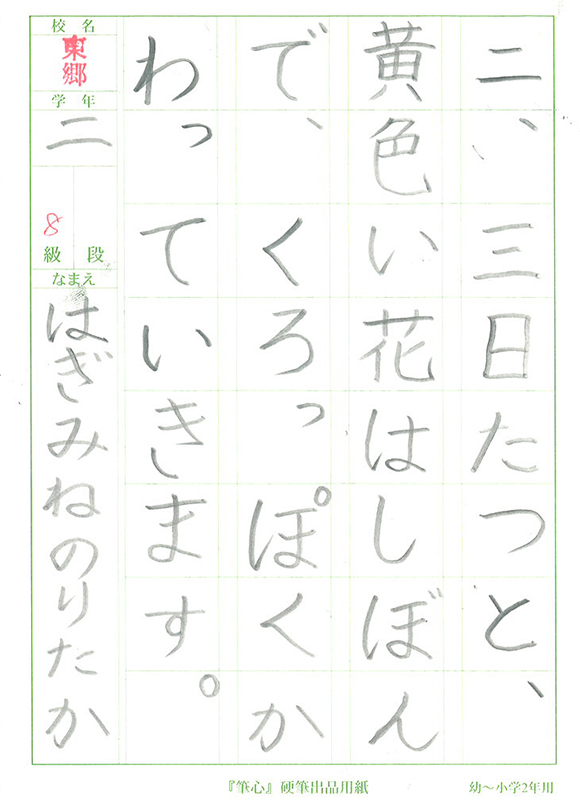 二、三日たつと、
黄色い花はしぼん
で、くろっぽくか
わっていきます。
校名
東郷
学年
二
8
級 段
なまえ
はぎみねのりたか
『筆心』硬筆出品用紙
幼〜小学2年用